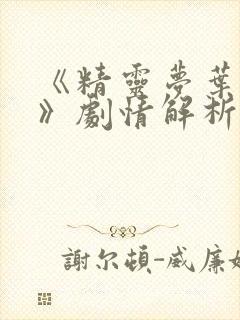 《精靈夢葉
》劇情解析
謝尔頓-威廉